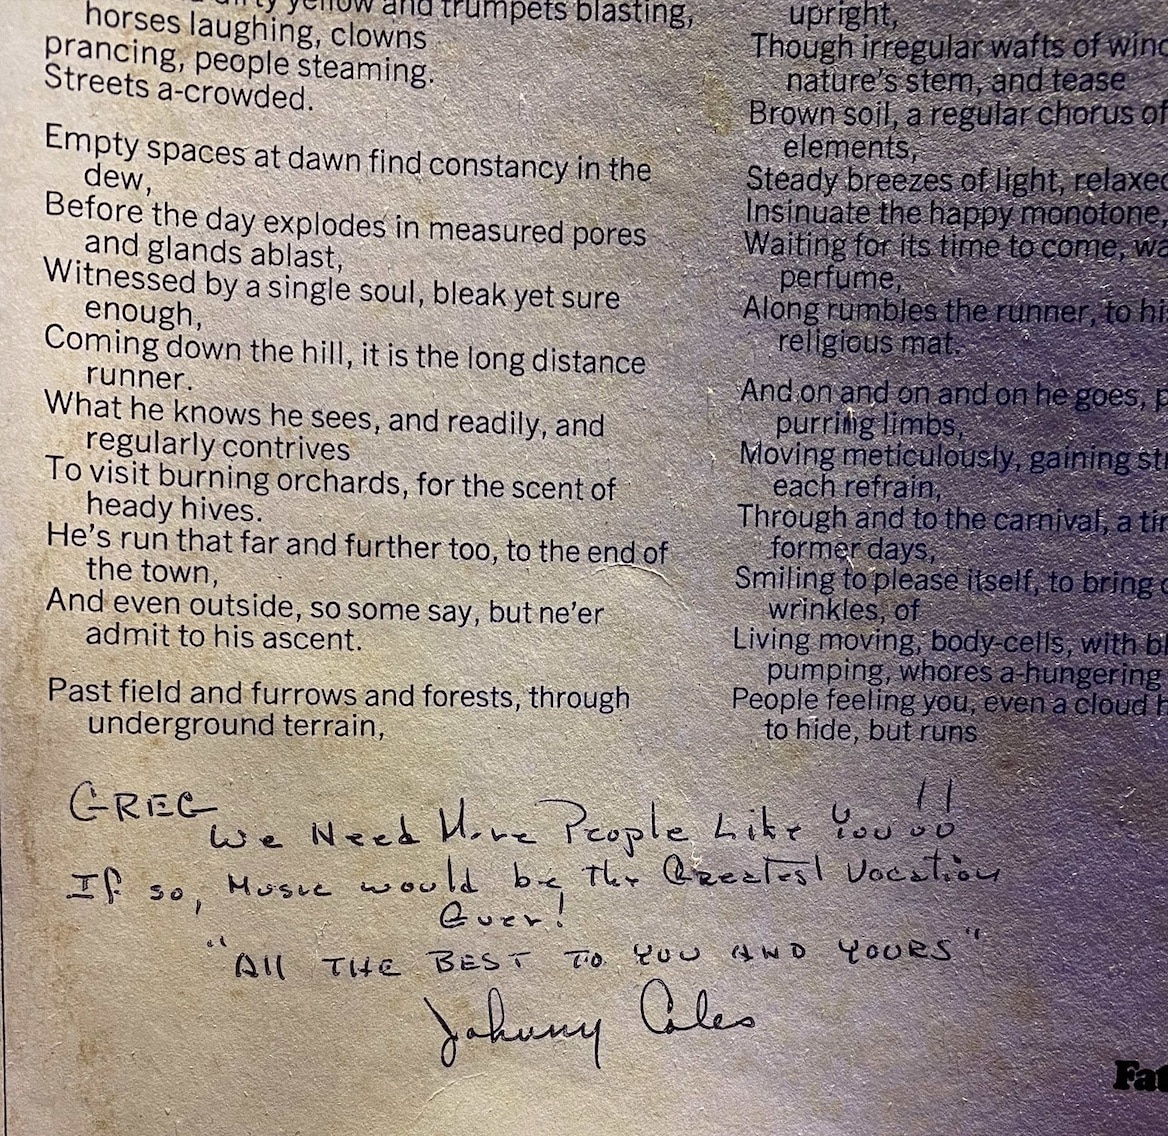 yellow and trumpets blasting,
horses laughing, clowns
prancing, people steaming.
Streets a-crowded.
Empty spaces at dawn find constancy in the
dew,
Before the day explodes in measured pores
and glands ablast,
Witnessed by a single soul, bleak yet sure
enough,
Coming down the hill, it is the long distance
runner.
What he knows he sees, and readily, and
regularly contrives
To visit burning orchards, for the scent of
heady hives.
He's run that far and further too, to the end of
the town,
And even outside, so some say, but ne'er
admit to his ascent.
Past field and furrows and forests, through
underground terrain,
upright,
Though irregular wafts of
nature's stem, and tease
Brown soil, a regular chorus of
elements,
Steady breezes of light,
Insinuate the happy monotone,
Waiting for its time to come,
perfume,
Along rumbles the runner, to
religious mat.
And on and on and on he goes,
purring limbs,
Moving meticulously, gaining
each refrain,
Through and to the carnival, a
former days,
Smiling to please itself, to bring
wrinkles, of
Living moving, body-cells, with
pumping, whores a-hungering
People feeling you, even a cloud
to hide, but runs
GREG
We Need More People Like You!!
If so, Music would be the Greatest Vocation
Ever!
"All THE BEST TO YOU AND YOURS"
Johnny Coles